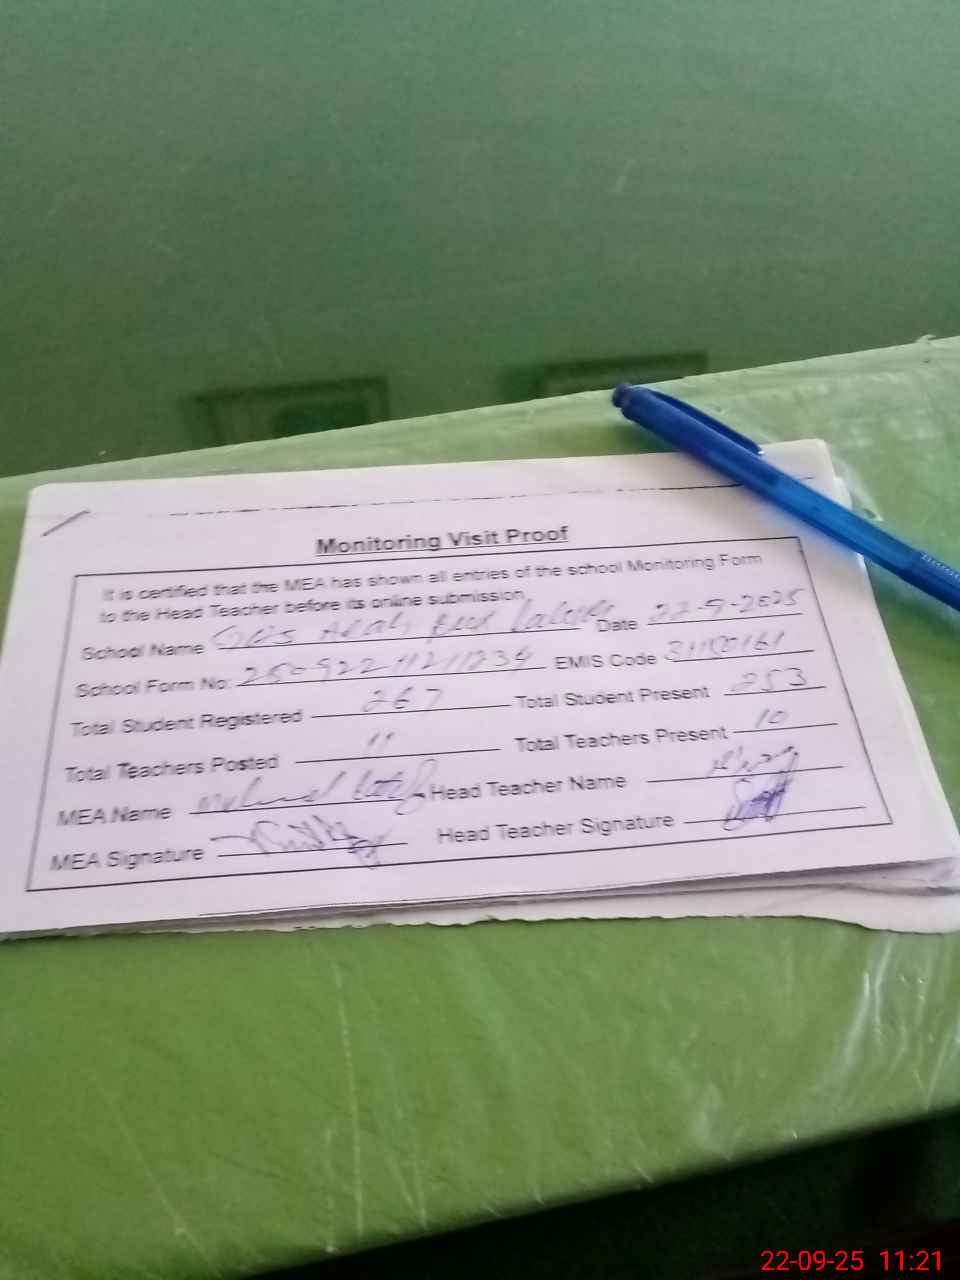 Monitoring Visit Proof
It is certified that the MEA has shown all entries of the school Monitoring Form
to the Head Teacher before its online submission.
School Name Date 22-9-2025
School Form No: EMIS Code
Total Student Registered 267 Total Student Present 253
Total Teachers Posted 11 Total Teachers Present 10
MEA Name Head Teacher Name
MEA Signature Head Teacher Signature
22-09-25 11:21